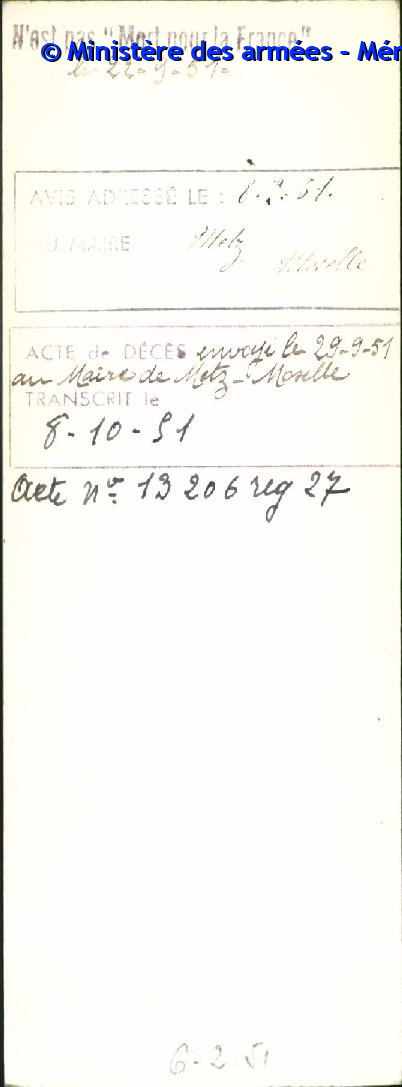 N'est pas "Mort pour la France"
© Ministère des armées - Mér
le 22-9-51-
AVIS ADRESSÉ LE : 8.2.51.
AU MAIRE Metz
Moselle
ACTE de DÉCÈS envoyé le 29-9-51
au Maire de Metz - Moselle
TRANSCRIT le
8-10-51
Acte no 13 206 reg 27
6-2-51